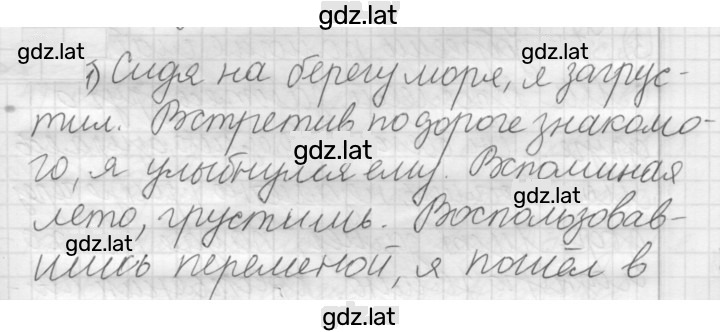 gdz.lat
gdz.lat
1) Сидя на берегу моря, я загрус-
gdz.lat
тил. Встретив по дороге знакомо-
gdz.lat
го, я улыбнулся ему. Вспоминая
gdz.lat
лето, грустишь. Воспользовав-
gdz.lat
шись переменой, я пошёл в
gdz.lat